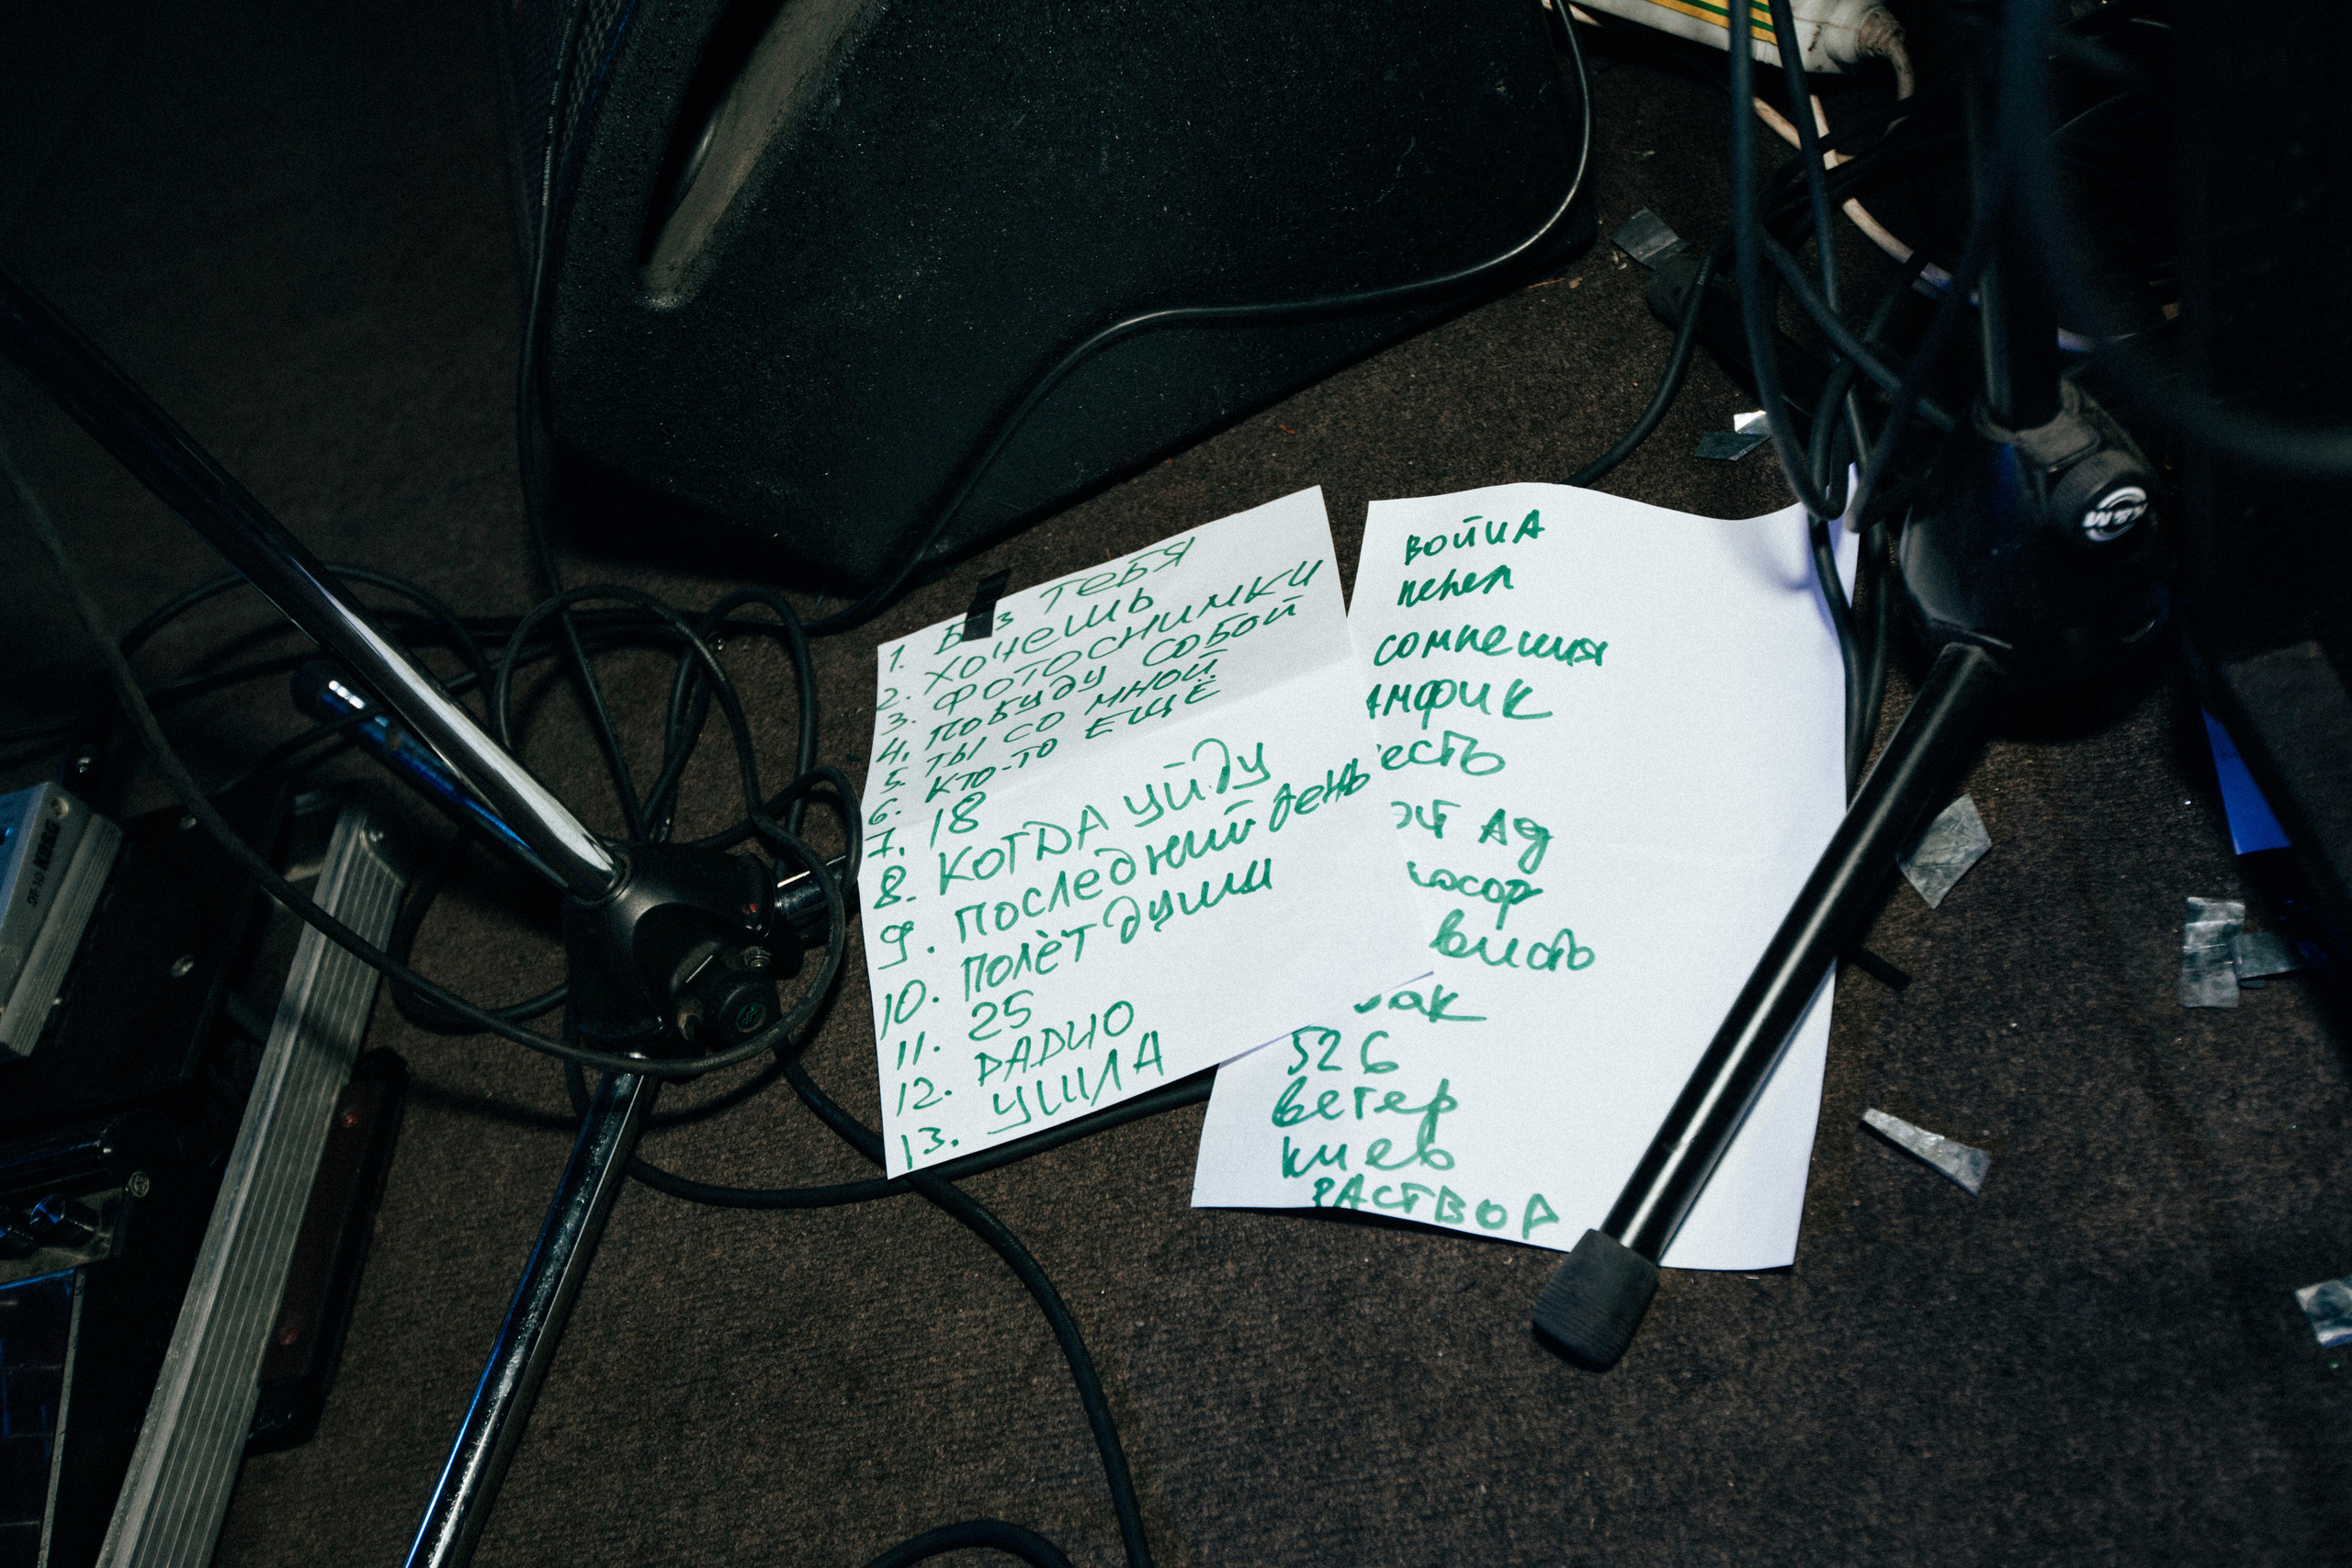 1. Без ТЕБЯ
2. ХОЧЕШЬ
3. ФОТОСНИМКИ
4. ПОБУДУ СОБОЙ
5. ТЫ СО МНОЙ
6. КТО-ТО ЕЩЁ
7. 18
8. КОГДА УЙДУ
9. ПОСЛЕДНИЙ ДЕНЬ
10. ПОЛЁТ ДУШИ
11. 25
12. РАДИО
13. УШЛА
ВОЙНА
пепел
сомнения
АНФИК
есть
АД
висть
526
ветер
киев
РАСТВОР
DF-10 KORG